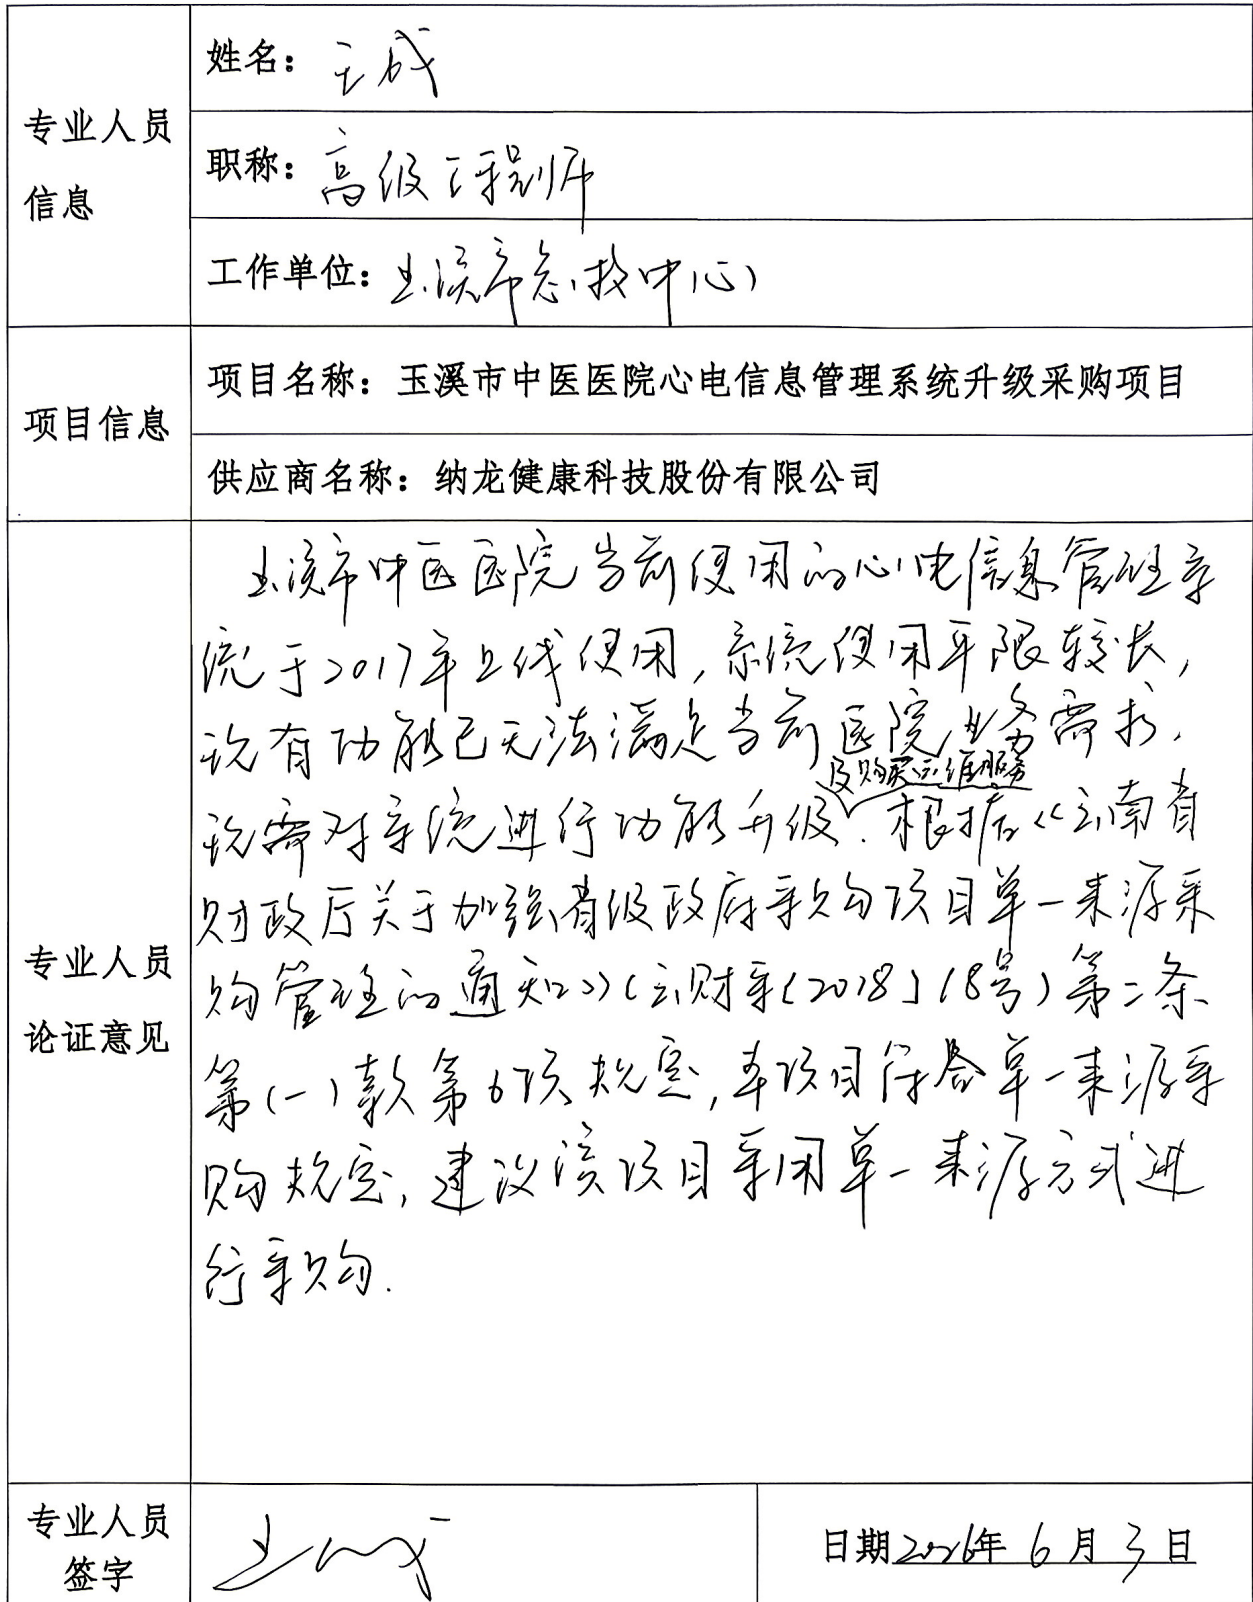 专业人员
信息
姓名：王成
职称：高级工程师
工作单位：玉溪市急救中心
项目信息
项目名称：玉溪市中医医院心电信息管理系统升级采购项目
供应商名称：纳龙健康科技股份有限公司
专业人员
论证意见
玉溪市中医医院当前使用的心电信息管理系
统于2017年上线使用，系统使用年限较长，
现有功能已无法满足当前医院业务需求，
及购买运维服务
现需对系统进行功能升级。根据《云南省
财政厅关于加强省级政府采购项目单一来源采
购管理的通知》（云财采〔2018〕18号）第二条
第（一）款第6项规定，本项目符合单一来源采
购规定，建议该项目采用单一来源方式进
行采购.
专业人员
签字
王成
日期2026年6月3日